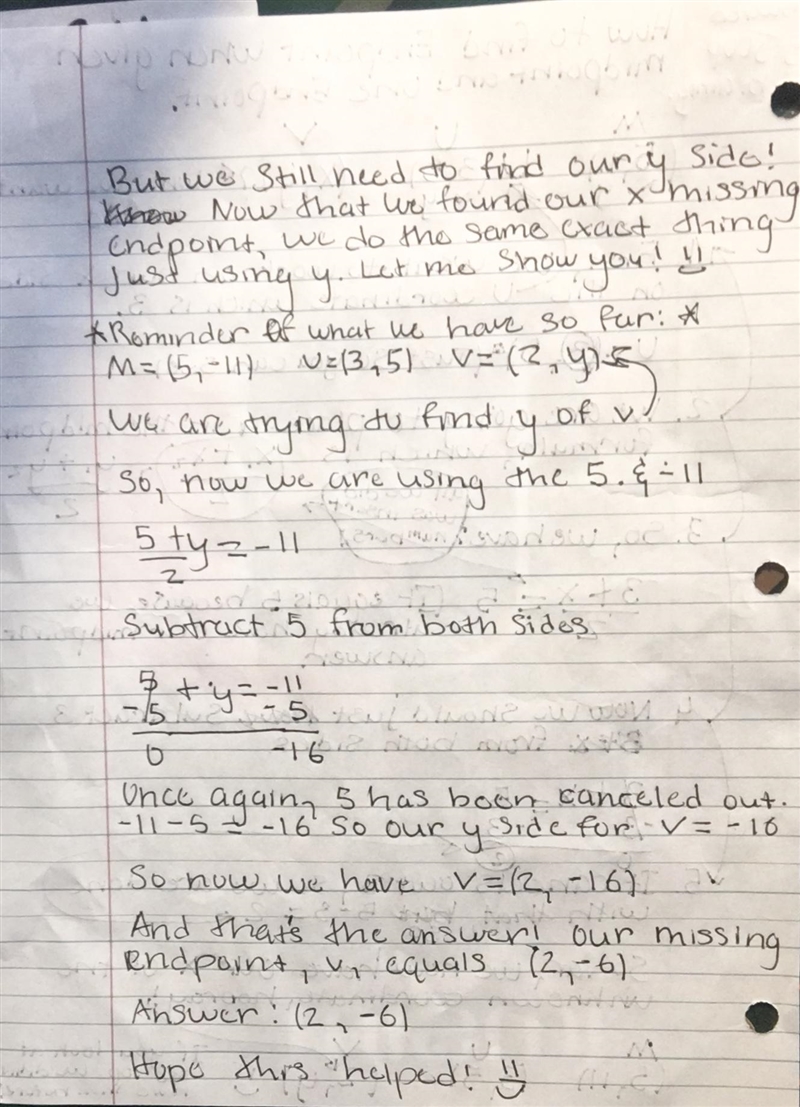 But we still need to find our y side!
Now that we found our x missing
endpoint, we do the same exact thing
just using y. Let me show you!
*Reminder of what we have so far: *
M=(5,-11) U=(3,5) V=(2,y)
We are trying to find y of v.
So, now we are using the 5. & -11
5+y=-11
2
Subtract 5 from both sides
5 + y = -11
-5 -5
0 -16
Once again, 5 has been canceled out.
-11-5 = -16 So our y side for V = -16
So now we have V=(2,-16)
And that's the answer! our missing
endpoint, v, equals (2,-6)
Answer: (2,-6)
Hope this helped!